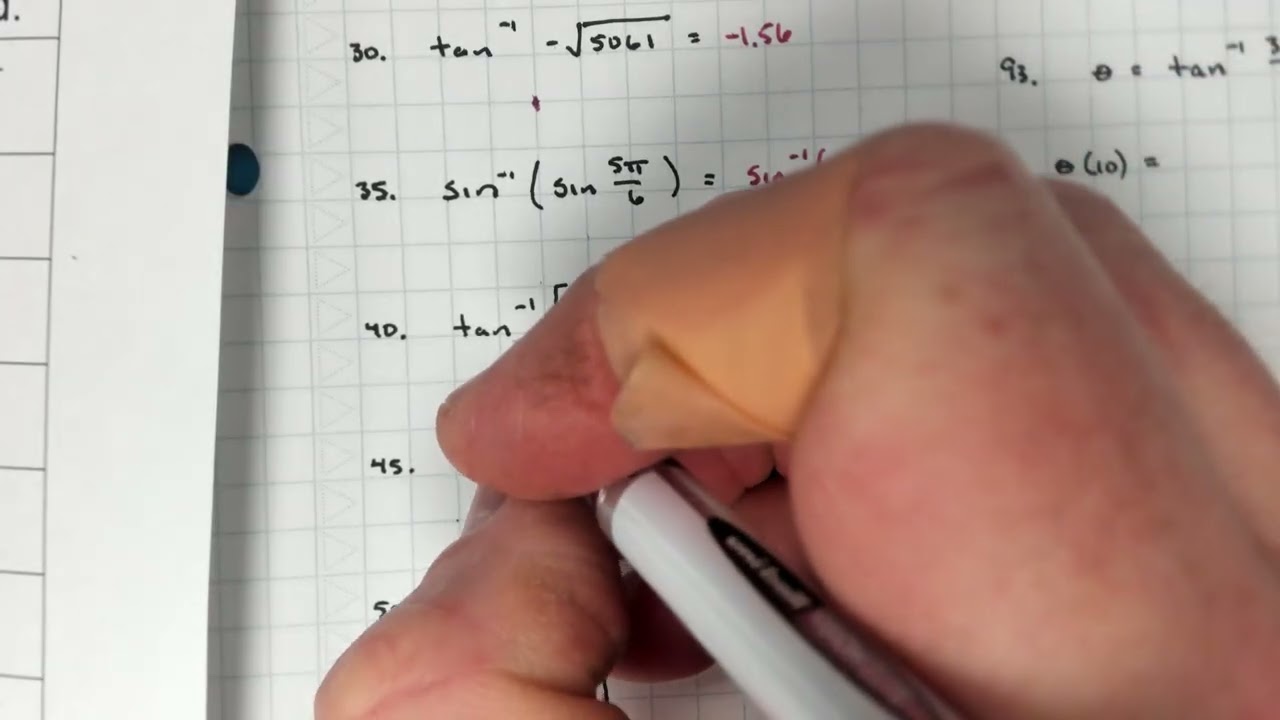 30. tan⁻¹ -√5061 = -1.56
35. sin⁻¹ ( sin 5π/6 ) = sin⁻¹(
40. tan⁻¹
45.
93. θ = tan⁻¹ 3
θ(10) =